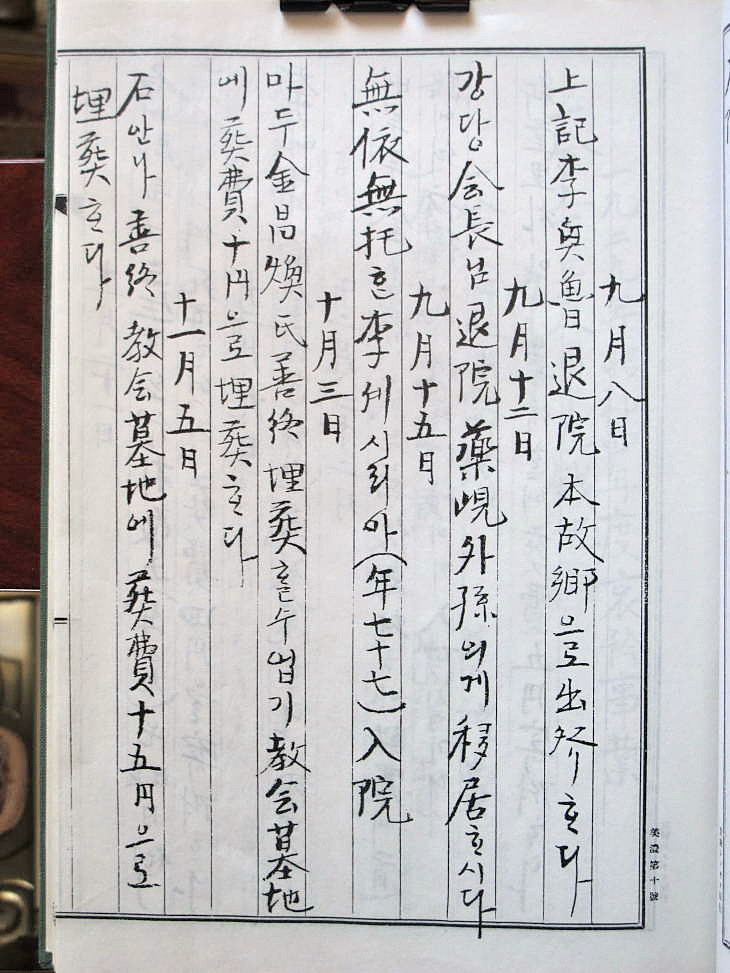 九月八日
上記李奐魯退院本故鄕으로出發ᄒᆞ다
九月十二日
강당会長님退院藥峴外孫의게移居ᄒᆞ시다
九月十五日
無依無托ᄒᆞᆫ李세시리아(年七十七)入院
十月三日
마두金昌煥氏善終埋葬ᄒᆞᆯ수업기教会墓地
에葬費十円으로埋葬ᄒᆞ다
十一月五日
石안나善終教会墓地에葬費十五円으로
埋葬ᄒᆞ다
美濃第十號